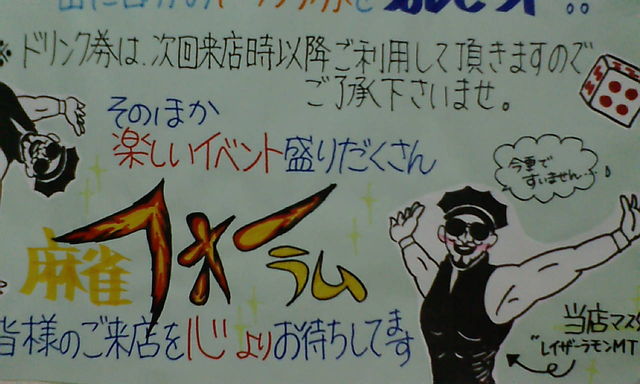 ※ドリンク券は、次回来店時以降ご利用して頂きますので
ご了承下さいませ。
そのほか
楽しいイベント盛りだくさん
今電で
すいません…
麻雀 フォーラム
皆様のご来店を心よりお待ちしてます
当店マスタ
"レイザーラモンMT